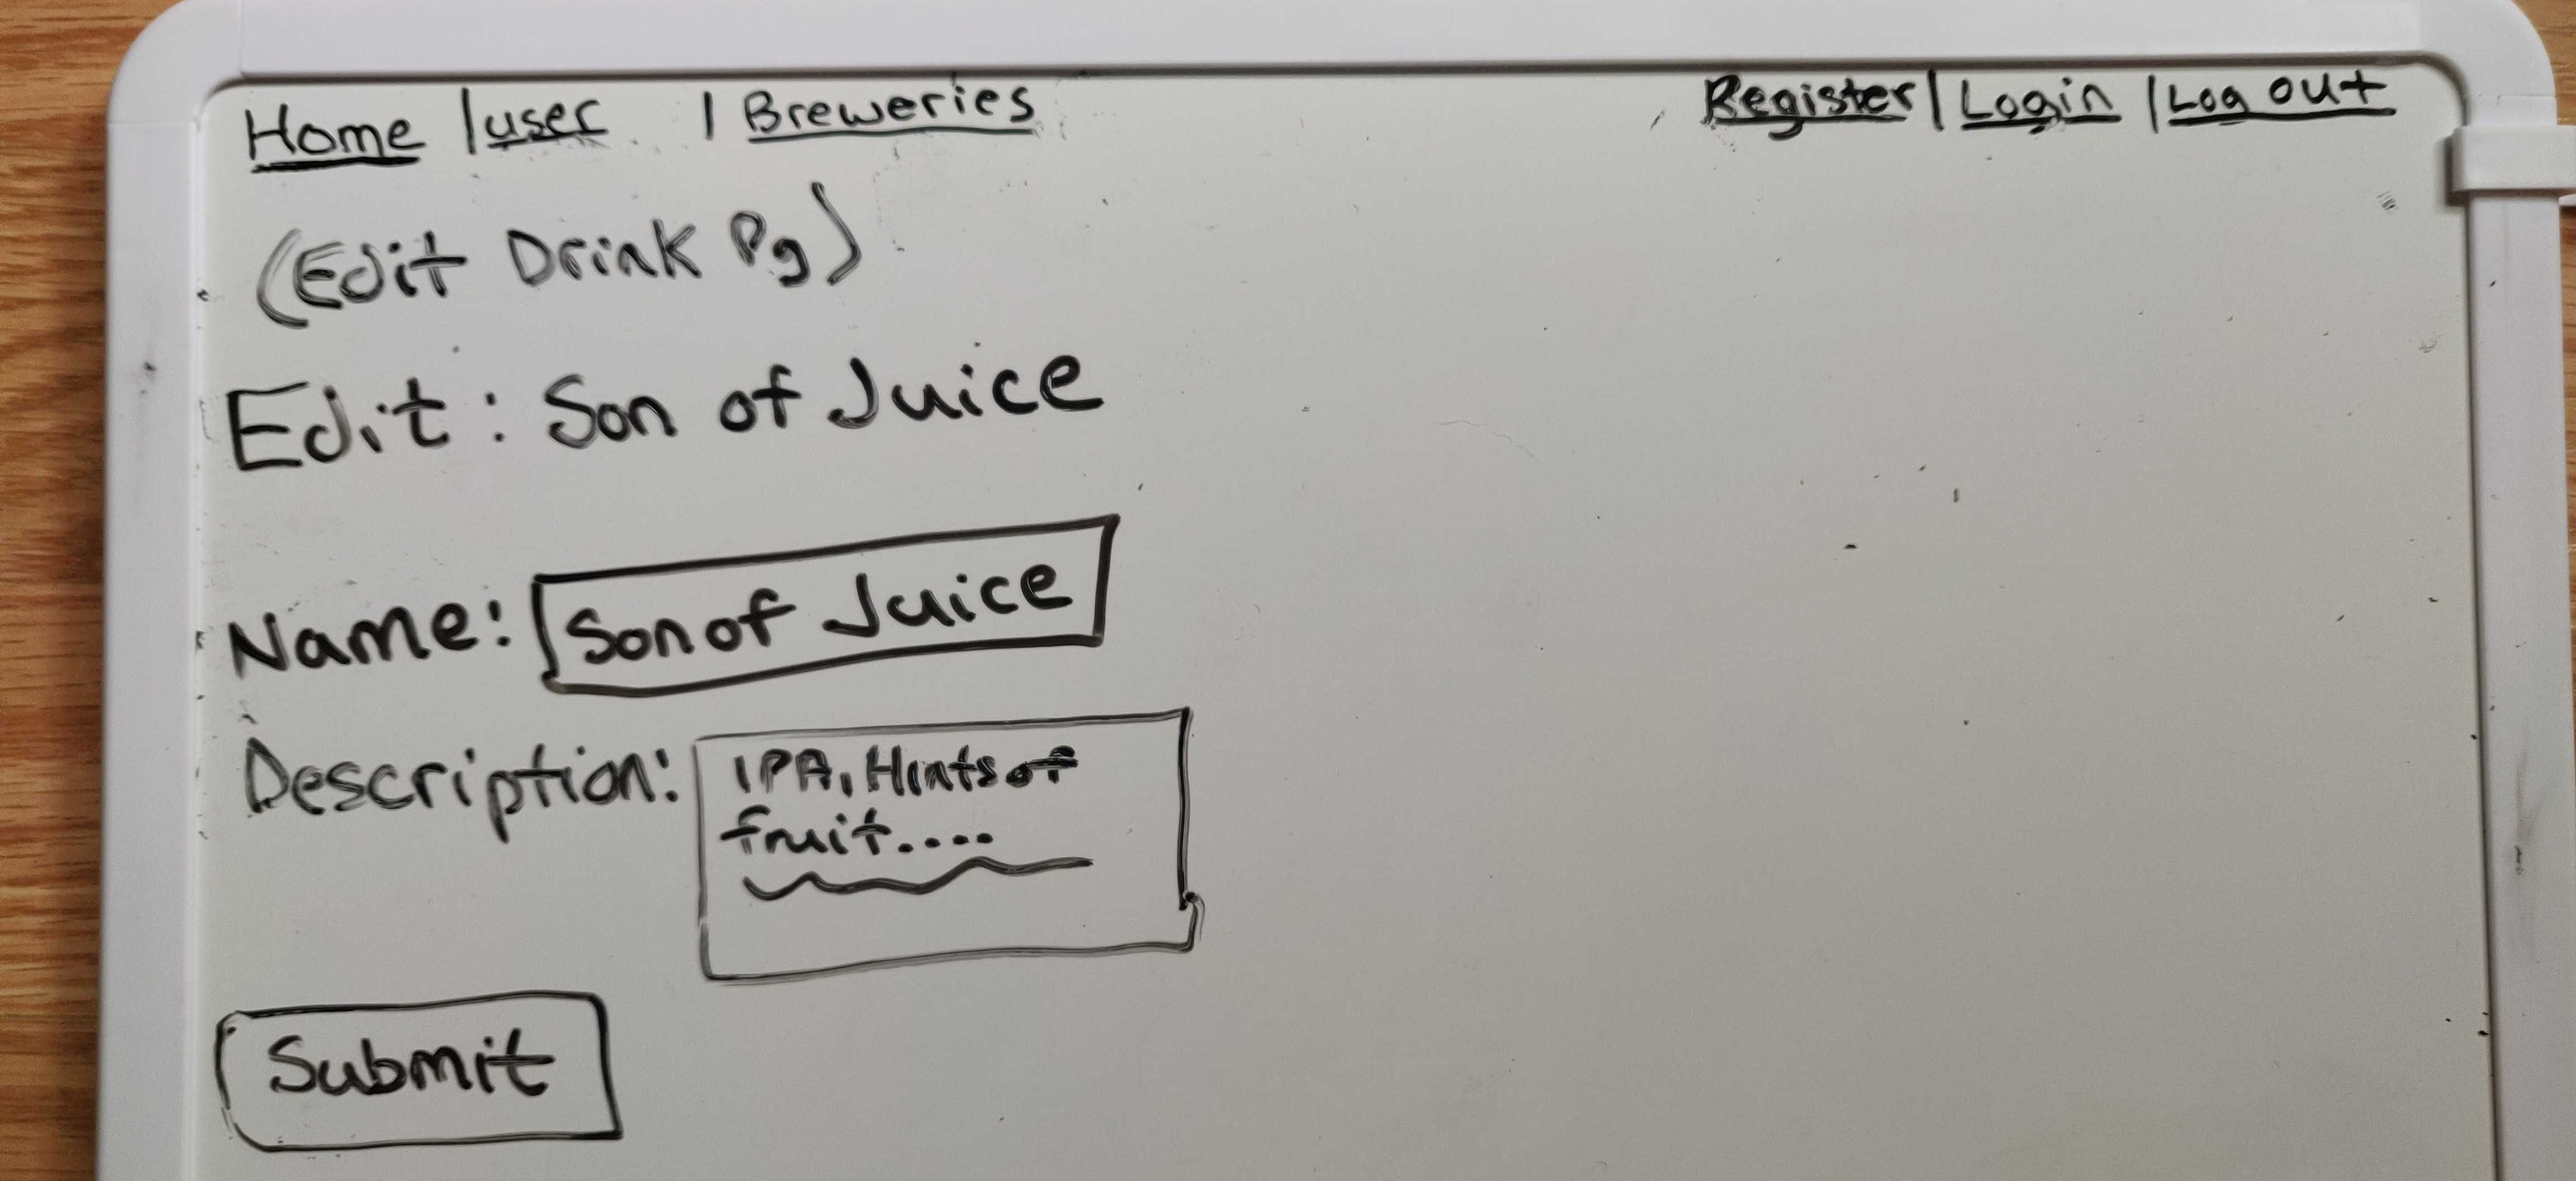 Home | user | Breweries Register | Login | Log out
(Edit Drink Pg)
Edit: Son of Juice
Name: Son of Juice
Description: IPA, Hints of
fruit....
Submit